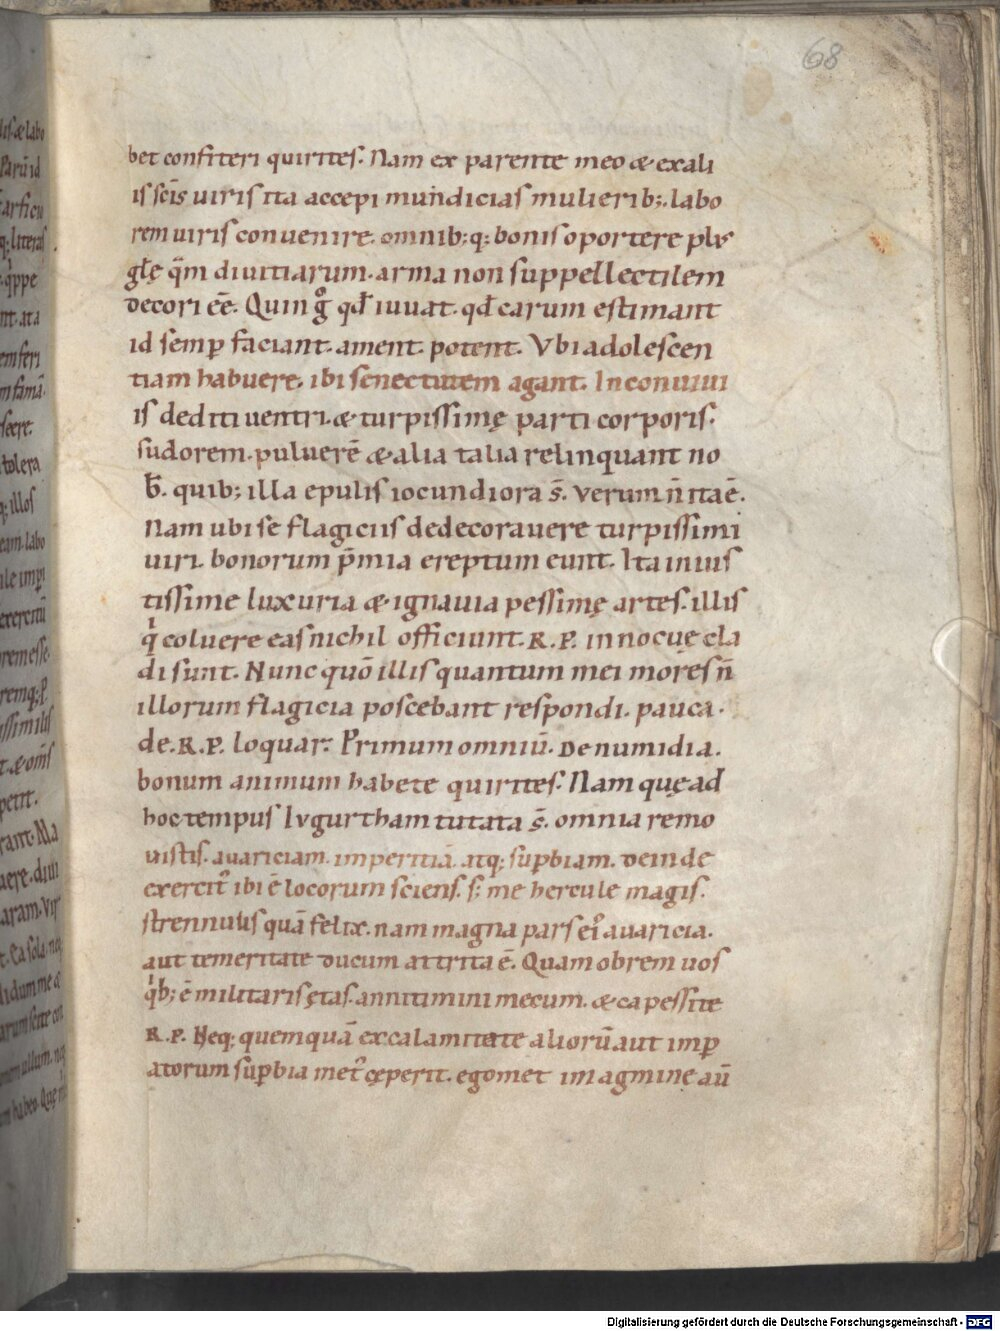 68
bet confiteri quirites. Nam ex parente meo & ex ali
is sc̄is uiris ita accepi mundicias mulierib;. labo
rem uiris conuenire. omnib;q; bonis oportere plus
glę q̄m diuitiarum. arma non suppellectilem
decori eē. Quin g̊ qđ iuuat. qđ carum estimant
id semp faciant. ament. potent. Vbi adolescen
tiam habuere. ibi senectutem agant. In conuiui
is dediti uentri. & turpissimę parti corporis.
sudorem. puluerē & alia talia relinquant no
b̄. quib; illa epulis iocundiora s̄. Verum n̄ ita ē.
Nam ubi se flagiciis dedecorauere turpissimi
uiri. bonorum p̄mia ereptum eunt. Ita inius
tissime luxuria & ignauia pessimę artes. illis
q̍ coluere eas nichil officiunt. R. P. innocuę cla
di sunt. Nunc quō illis quantum mei mores n̄
illorum flagicia poscebant respondi. pauca.
de. R. P. loquar. Primum omniū. De numidia.
bonum animum habete quirites. Nam quę ad
hoc tempus Ivgurtham tutata s̄. omnia remo
uistis. auariciam. imperitiā. atq; supbiam. Deinde
exercit᷒ ibi ē locorum sciens. s; me hercule magis.
strennuus quā felix. nam magna pars ei᷒ auaricia.
aut temeritate ducum attrita ē. Quamobrem uos
q̍b; ē militaris ętas. annitimini mecum. & capessite
R. P. Neq; quemquā ex calamitate aliorū aut imp
atorum supbia met᷒ cęperit. egomet in agmine aū
Digitalisierung gefördert durch die Deutsche Forschungsgemeinschaft - DFG